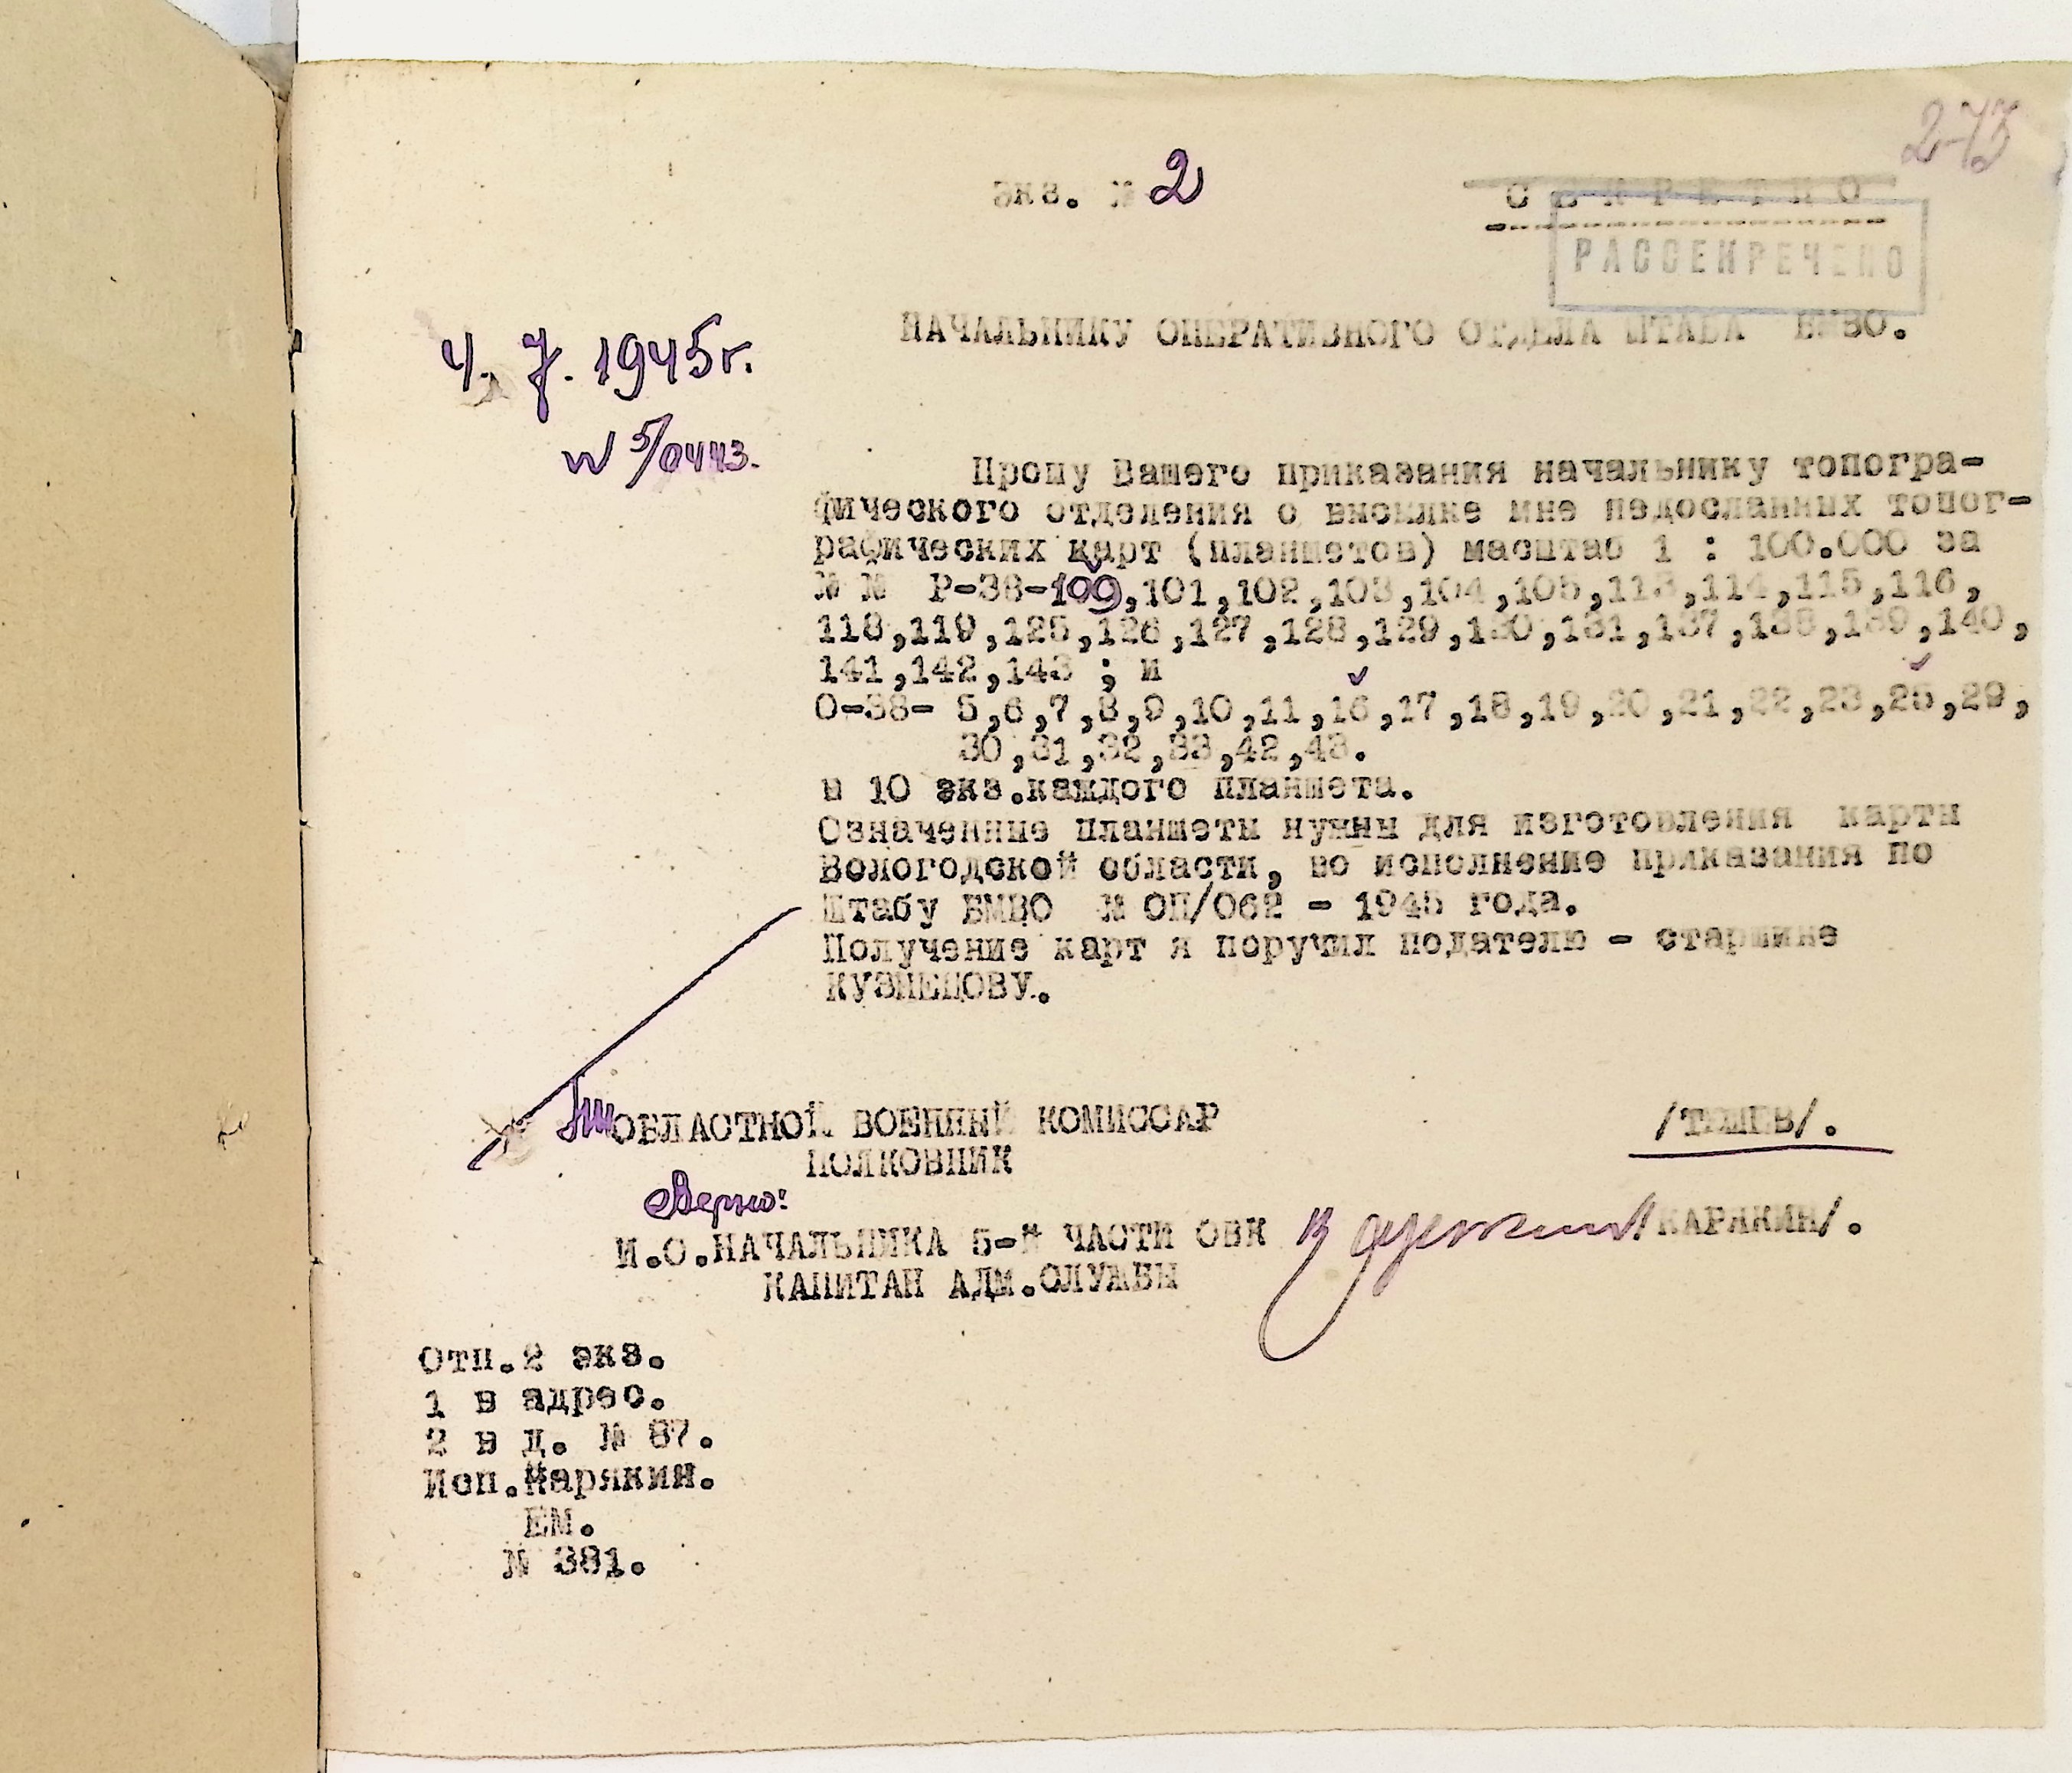 273
экз. № 2
СЕКРЕТНО
РАССЕКРЕЧЕНО
НАЧАЛЬНИКУ ОПЕРАТИВНОГО ОТДЕЛА ШТАБА БМВО.
4. 7. 1945г.
№ 5/0443.
Прошу Вашего приказания начальнику топогра-
фического отделения о высылке мне недосланных топог-
рафических карт (планшетов) масштаб 1 : 100.000 за
№ № Р-38-109,101,102,103,104,105,113,114,115,116,
118,119,125,126,127,128,129,130,131,137,138,139,140,
141,142,143 ; и
О-38- 5,6,7,8,9,10,11,16,17,18,19,20,21,22,23,25,29,
30,31,32,33,42,43.
в 10 экз.каждого планшета.
Означенные планшеты нужны для изготовления карты
Вологодской области, во исполнение приказания по
Штабу БМВО № ОП/062 - 1945 года.
Получение карт я поручил подателю - старшине
КУЗНЕЦОВУ.
ОБЛАСТНОЙ ВОЕННЫЙ КОМИССАР
ПОЛКОВНИК
Верно:
И.О.НАЧАЛЬНИКА 5-й ЧАСТИ ОВК /КАРЯКИН/.
КАПИТАН АДМ.СЛУЖБЫ
Отп.2 экз.
1 в адрес.
2 в д. № 87.
Исп.Карякин.
ЕМ.
№ 381.